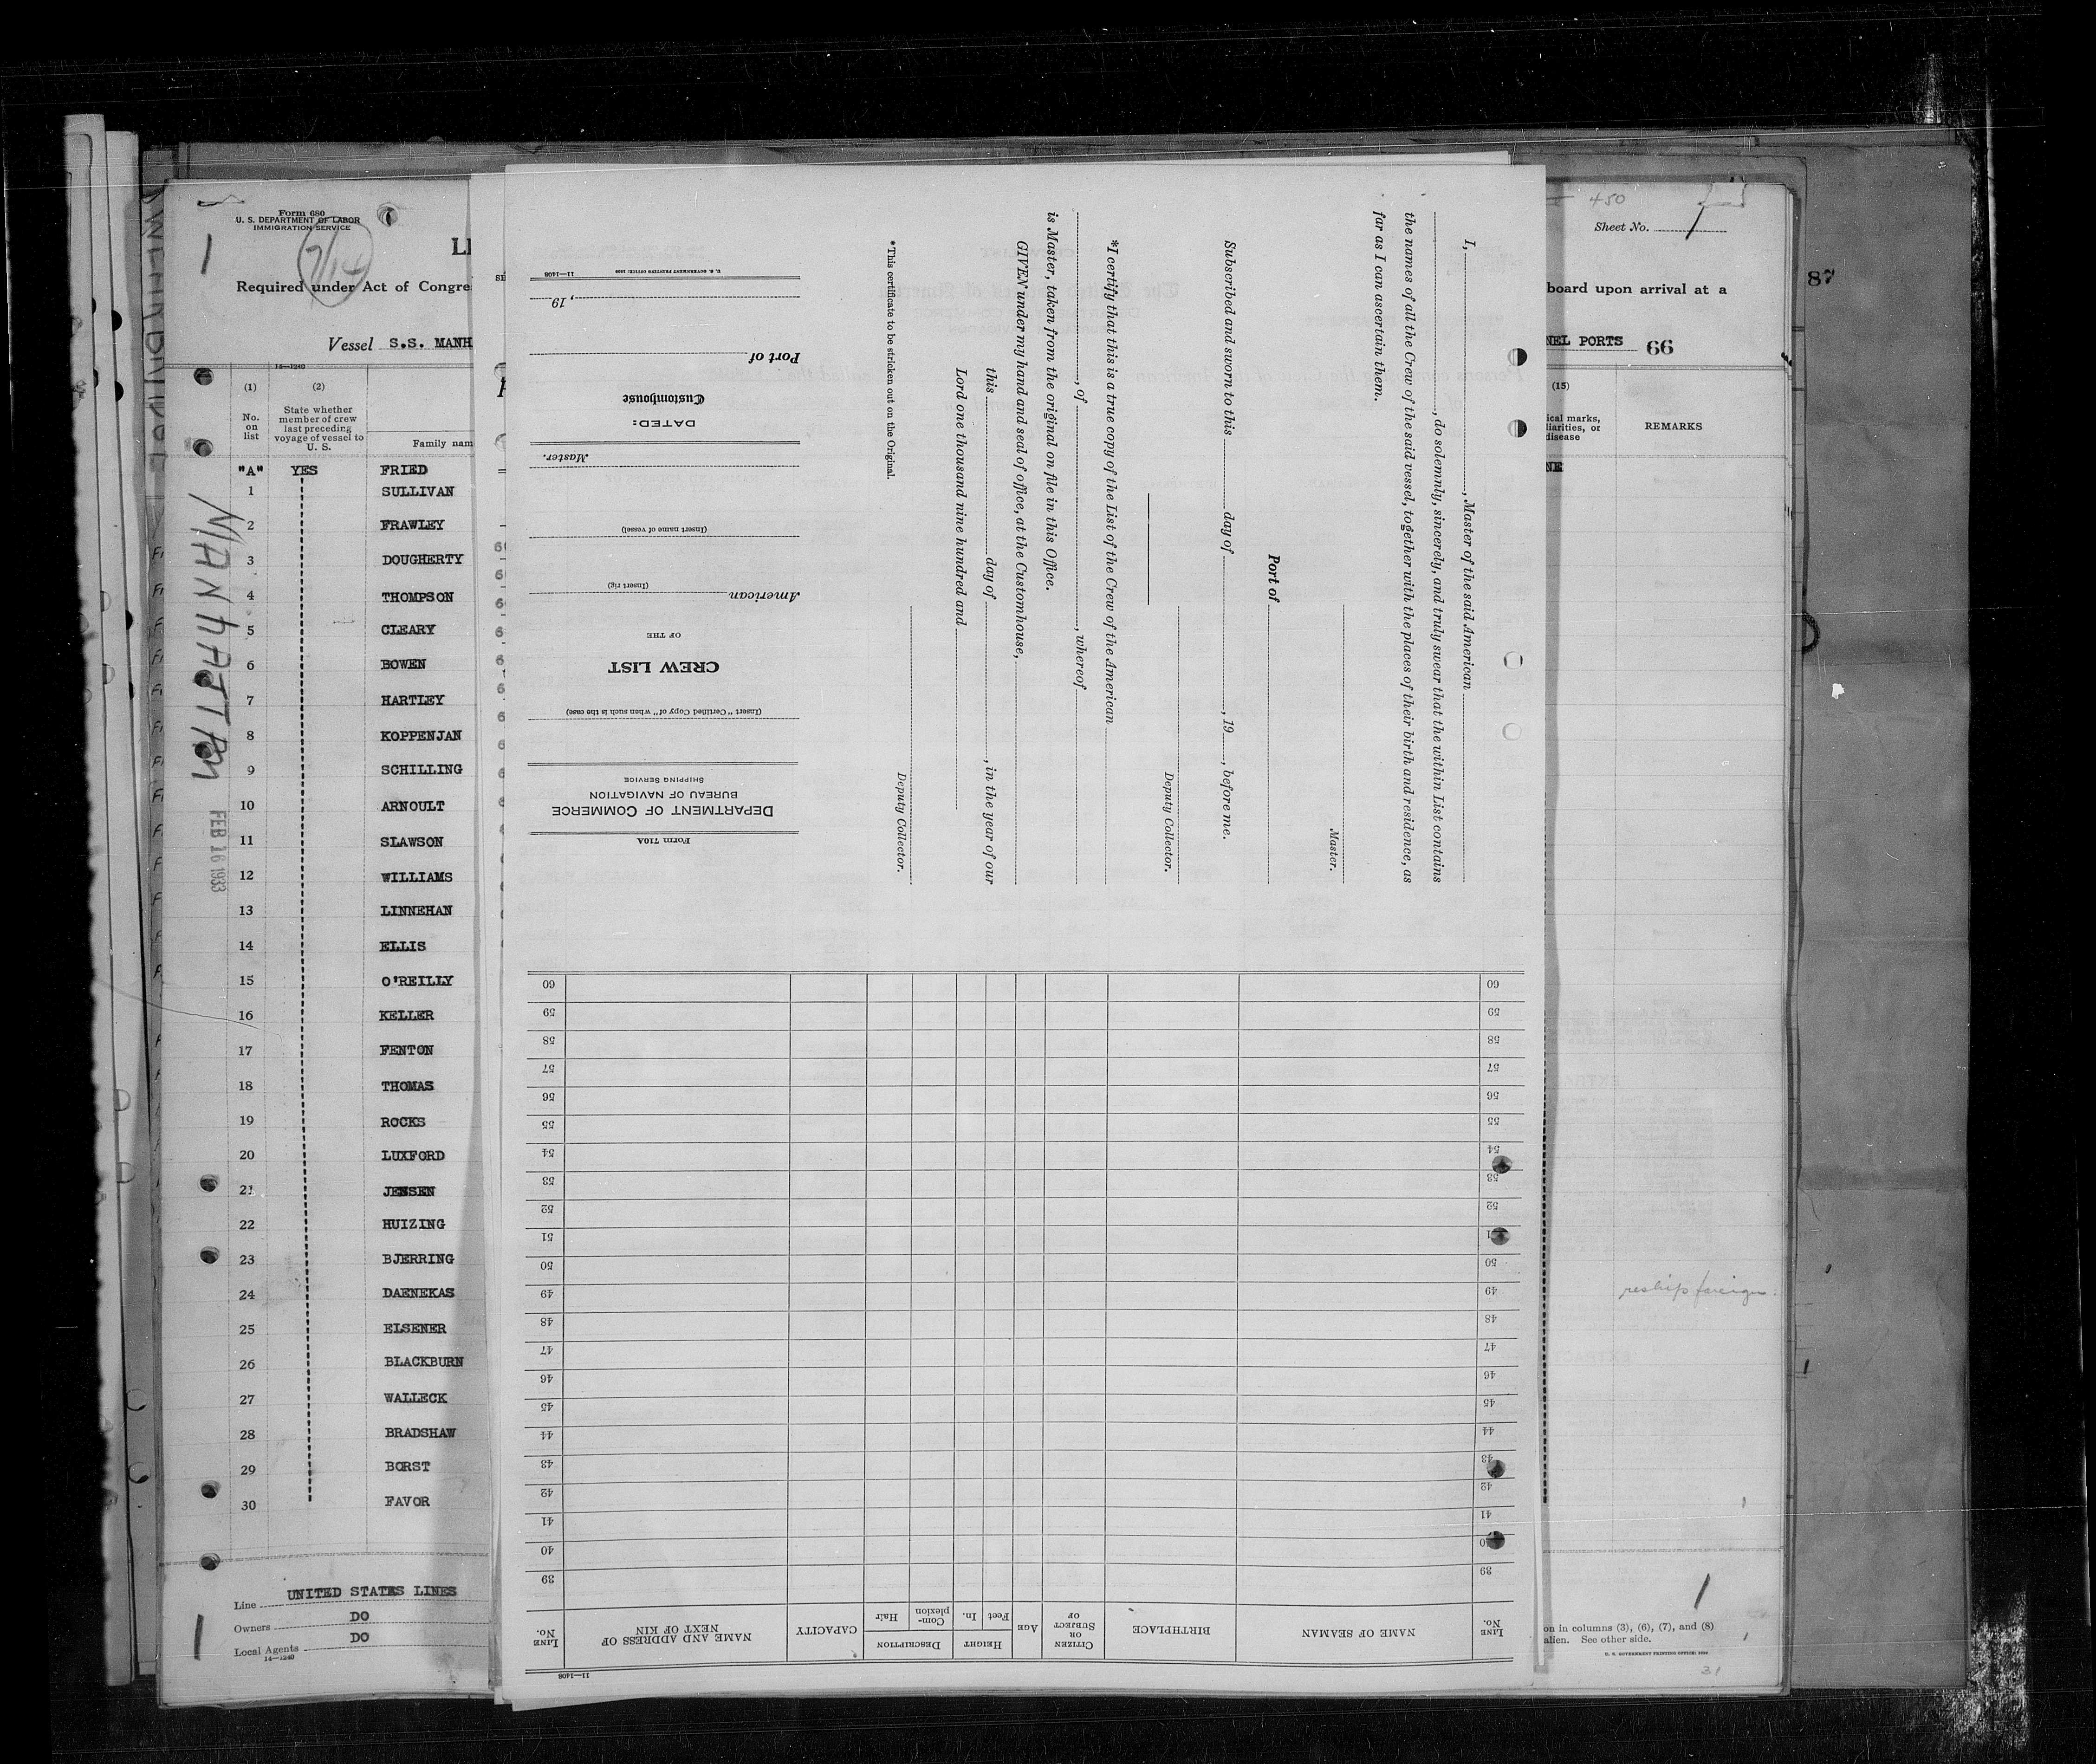 Form 680
U. S. DEPARTMENT OF LABOR
IMMIGRATION SERVICE
1
7/14
LI
Required under Act of Congre
Vessel S.S. MANH
14—1240
(1)
(2)
No.
on
list
State whether
member of crew
last preceding
voyage of vessel to
U. S.
Family nam
"A" YES FRIED
1 SULLIVAN
2 FRAWLEY
3 DOUGHERTY
4 THOMPSON
5 CLEARY
6 BOWEN
7 HARTLEY
8 KOPPENJAN
9 SCHILLING
10 ARNOULT
11 SLAWSON
12 WILLIAMS
13 LINNEHAN
14 ELLIS
15 O'REILLY
16 KELLER
17 FENTON
18 THOMAS
19 ROCKS
20 LUXFORD
21 JENSEN
22 HUIZING
23 BJERRING
24 DAENEKAS
25 ELSENER
26 BLACKBURN
27 WALLECK
28 BRADSHAW
29 BORST
30 FAVOR
MANHATTAN
FEB 16 1933
Line UNITED STATES LINES
Owners DO
Local Agents DO
14—1240
1
I, , Master of the said American
, do solemnly, sincerely, and truly swear that the within List contains
the names of all the Crew of the said vessel, together with the places of their birth and residence, as
far as I can ascertain them.
Master.
Port of
Subscribed and sworn to this day of , 19 , before me.
Deputy Collector.
*I certify that this is a true copy of the List of the Crew of the American
, of , whereof
is Master, taken from the original on file in this Office.
GIVEN under my hand and seal of office, at the Customhouse,
this day of , in the year of our
Lord one thousand nine hundred and
Deputy Collector.
*This certificate to be stricken out on the Original.
Form 710A
DEPARTMENT OF COMMERCE
BUREAU OF NAVIGATION
SHIPPING SERVICE
(Insert "Certified Copy of" when such is the case)
CREW LIST
OF THE
American
(Insert rig)
(Insert name of vessel)
Master.
DATED:
Customhouse
Port of
, 19
U. S. GOVERNMENT PRINTING OFFICE: 1930 11—1408
11—1408
LINE No.
NAME OF SEAMAN
BIRTHPLACE
CITIZEN OR SUBJECT OF
AGE
HEIGHT
Feet
In.
DESCRIPTION
Com-plexion
Hair
CAPACITY
NAME AND ADDRESS OF NEXT OF KIN
LINE No.
39 39
40 40
41 41
42 42
43 43
44 44
45 45
46 46
47 47
48 48
49 49
50 50
51 51
52 52
53 53
54 54
55 55
56 56
57 57
58 58
59 59
60 60
450
Sheet No. 1
board upon arrival at a
87
NEL PORTS 66
(15)
ical marks,
liarities, or
disease
REMARKS
NE
reship foreign.
1
on in columns (3), (6), (7), and (8)
alien. See other side.
U. S. GOVERNMENT PRINTING OFFICE
31